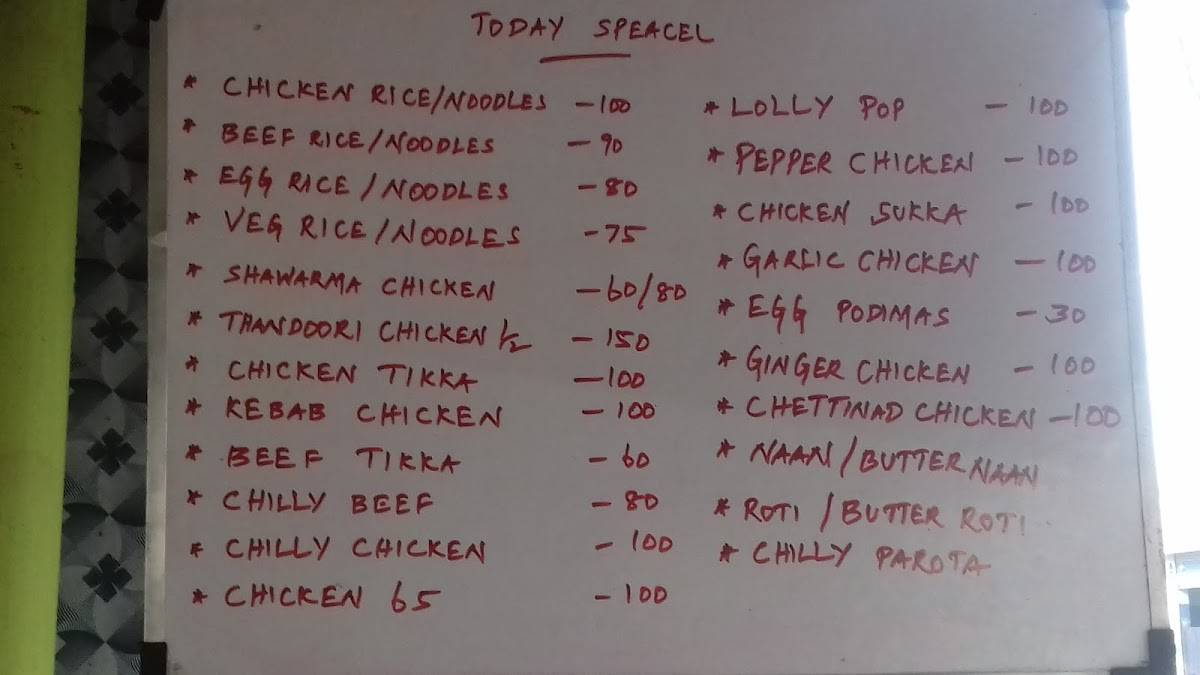 TODAY SPEACEL
* CHICKEN RICE/NOODLES - 100
* BEEF RICE/NOODLES - 90
* EGG RICE/NOODLES - 80
* VEG RICE/NOODLES - 75
* SHAWARMA CHICKEN - 60/80
* THANDOORI CHICKEN 1/2 - 150
* CHICKEN TIKKA - 100
* KEBAB CHICKEN - 100
* BEEF TIKKA - 60
* CHILLY BEEF - 80
* CHILLY CHICKEN - 100
* CHICKEN 65 - 100
* LOLLY POP - 100
* PEPPER CHICKEN - 100
* CHICKEN SUKKA - 100
* GARLIC CHICKEN - 100
* EGG PODIMAS - 30
* GINGER CHICKEN - 100
* CHETTINAD CHICKEN - 100
* NAAN/BUTTER NAAN
* ROTI/BUTTER ROTI
* CHILLY PAROTA